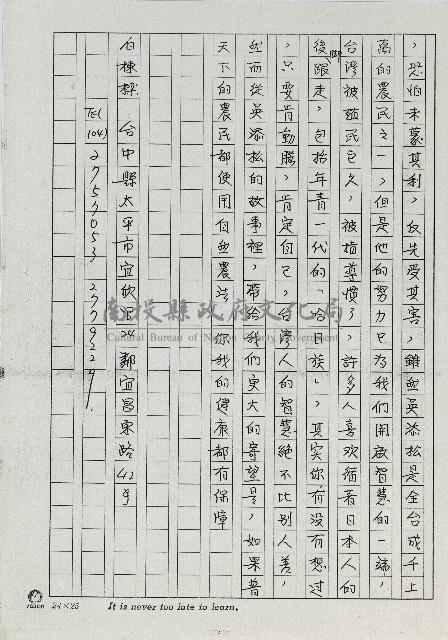 ，恐怕未蒙其利，反先受其害，雖然吳添松是全台成千上
萬的農民之一，但是他的努力已為我們開啟智慧的一端，
台灣被殖民已久，被指導慣了，許多人喜欢循着日本人的
後腳跟走，包括年青一代的「哈日族」，其实你有没有想过
，只要肯動腦，肯定自己，台灣人的智慧絕不比別人差，
然而從吳添松的故事裡，帶给我们更大的寄望是，如果普
天下的農民都使用自然農法，你我的健康都有保障
白棟樑 台中縣太平市宜欣里24鄰宜昌東路42号
TEL (04) 2757053 2779229.
南投縣政府文化局
Cultural Bureau of Nantou County Government
24×25 It is never too late to learn.